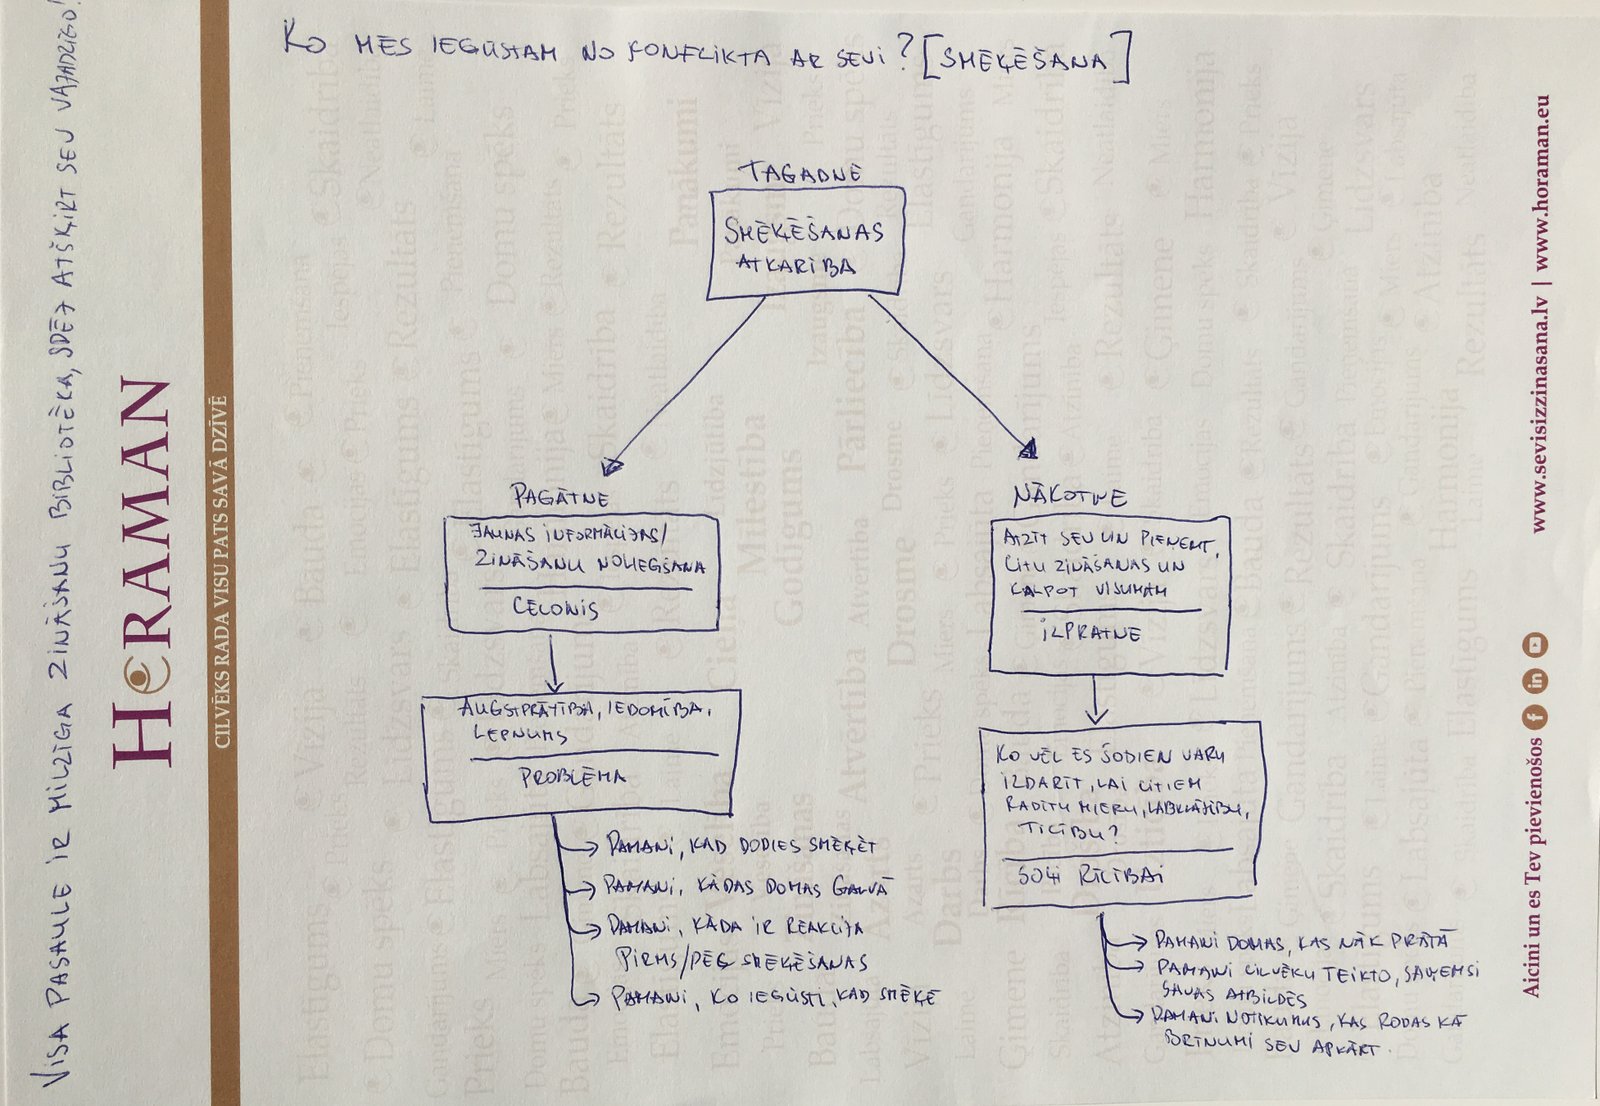 KO MĒS IEGŪSTAM NO KONFLIKTA AR SEVI? [SMĒĶĒŠANA]
TAGADNE
SMĒĶĒŠANAS
ATKARĪBA
PAGĀTNE
JAUNAS INFORMĀCIJAS/
ZINĀŠANU NOLIEGŠANA
CĒLONIS
AUGSTPRĀTĪBA, IEDOMĪBA,
LEPNUMS
PROBLĒMA
PAMANI, KAD DODIES SMĒĶĒT
PAMANI, KĀDAS DOMAS GALVĀ
PAMANI, KĀDA IR REAKCIJA
PIRMS/PĒC SMĒĶĒŠANAS
PAMANI, KO IEGŪSTI, KAD SMĒĶĒ
NĀKOTNE
ATZĪT SEVI UN PIEŅEMT,
CITU ZINĀŠANAS UN
KALPOT VISUMAM
IZPRATNE
KO VĒL ES ŠODIEN VARU
IZDARĪT, LAI CITIEM
RADĪTU MIERU, LABKLĀJĪBU,
TICĪBU?
SOĻI RĪCĪBAI
PAMANI DOMAS, KAS NĀK PRĀTĀ
PAMANI CILVĒKU TEIKTO, SAŅEMSI
SAVAS ATBILDES
PAMANI NOTIKUMUS, KAS RODAS KĀ
BRĪNUMI SEV APKĀRT.
VISA PASAULE IR MILZĪGA ZINĀŠANU BIBLIOTĒKA, SPĒJ ATŠĶIRT SEV VAJADZĪGO!
HORAMAN
CILVĒKS RADA VISU PATS SAVĀ DZĪVĒ
Aicini un es Tev pievienošos
www.sevisizzinasana.lv | www.horaman.eu